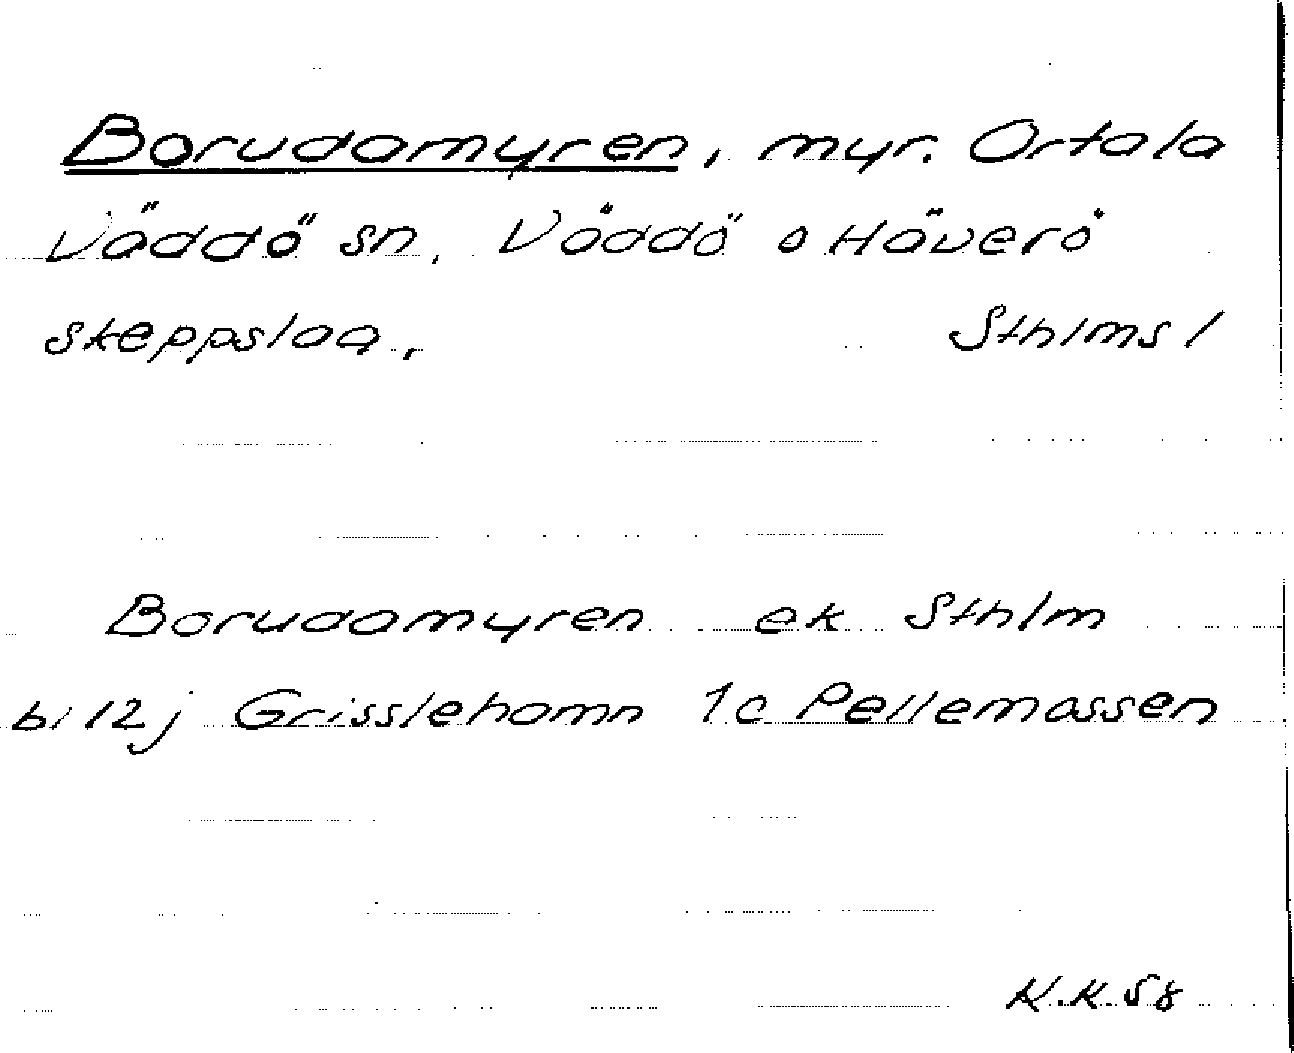 Borudamyren, myr. Ortala
Väddö sn. Väddö o Häverö
skeppslag. Sthlms l
Borudamyren ek Sthlm
bl 12j Grisslehamn 1c Pellemassen
K.K. 58